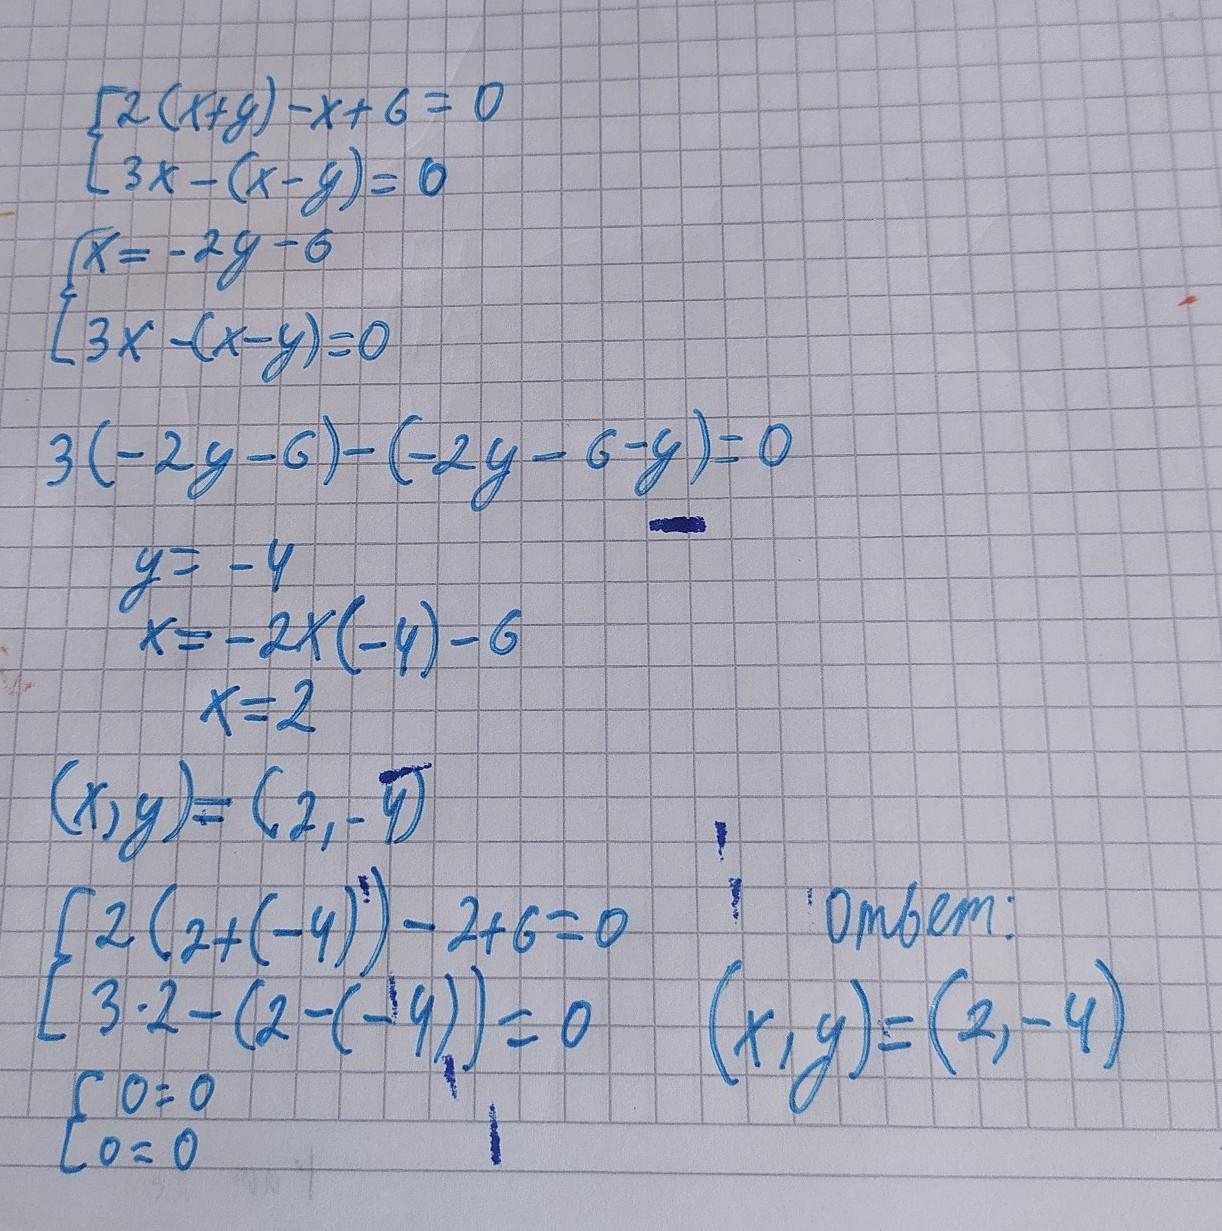 2(x+y)-x+6=0
3x-(x-y)=0
x=-2y-6
3x-(x-y)=0
3(-2y-6)-(-2y-6-y)=0
y=-4
x=-2x(-4)-6
x=2
(x,y)=(2,-4)
2(2+(-4))-2+6=0
3·2-(2-(-4))=0
0=0
0=0
Ответ:
(x,y)=(2,-4)